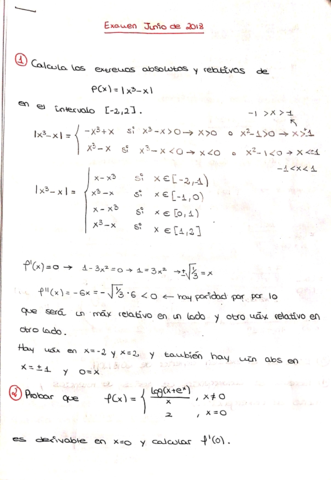 Examen Junio de 2018
① Calcula los extremos absolutos y relativos de
f(x) = |x³-x|
en el intervalo [-2,2].
-1 > x > 1
|x³-x| = { -x³+x si x³-x>0 → x>0 o x²-1>0 → x>1
x³-x si x³-x<0 → x<0 o x²-1<0 → x<±1
-1<x<1
|x³-x| = { x-x³ si x∈[-2,-1)
x³-x si x∈[-1,0)
x-x³ si x∈[0,1)
x³-x si x∈[1,2]
f'(x)=0 → 1-3x²=0 → 1=3x² → ±√⅓ = x
f''(x) = -6x = -√⅓·6 < 0 ← hay paridad por por lo
que será un máx relativo en un lado y otro máx relativo en
otro lado.
Hay máx en x=-2 y x=2, y también hay mín abs en
x=±1 y 0=x
② Probar que f(x) = { log(x+eˣ)/x , x≠0
2 , x=0
es derivable en x=0 y calcular f'(0).